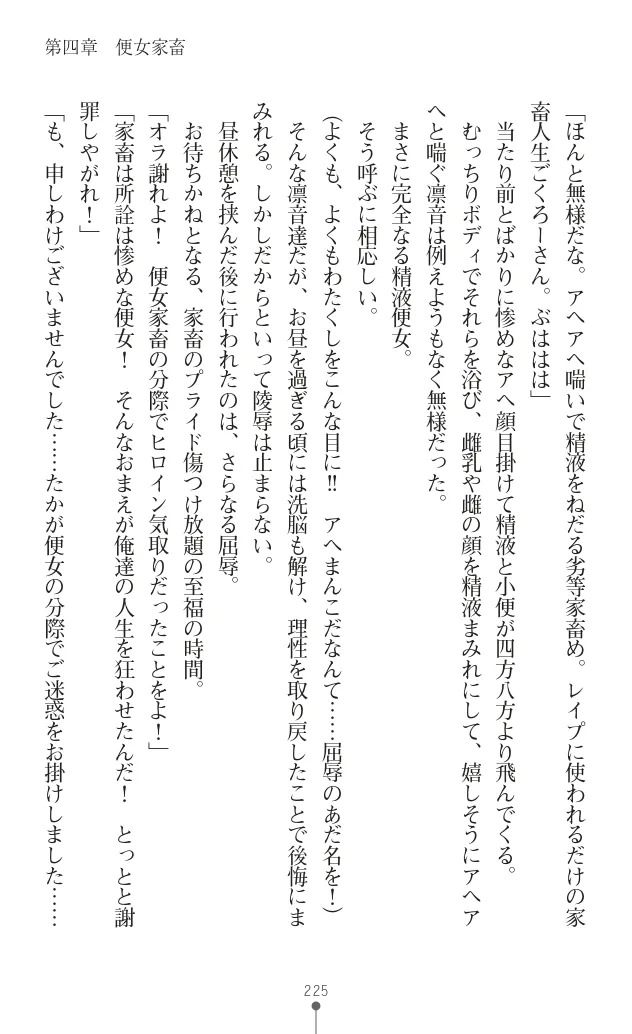 第四章　便女家畜
「ほんと無様だな。アヘアヘ喘いで精液をねだる劣等家畜め。レイプに使われるだけの家
畜人生ごくろーさん。ぶははは」
　当たり前とばかりに惨めなアヘ顔目掛けて精液と小便が四方八方より飛んでくる。
　むっちりボディでそれらを浴び、雌乳や雌の顔を精液まみれにして、嬉しそうにアヘア
へと喘ぐ凛音は例えようもなく無様だった。
　まさに完全なる精液便女。
　そう呼ぶに相応しい。
（よくも、よくもわたくしをこんな目に‼　アヘまんこだなんて……屈辱のあだ名を！）
　そんな凛音達だが、お昼を過ぎる頃には洗脳も解け、理性を取り戻したことで後悔にま
みれる。しかしだからといって陵辱は止まらない。
　昼休憩を挟んだ後に行われたのは、さらなる屈辱。
　お待ちかねとなる、家畜のプライド傷つけ放題の至福の時間。
「オラ謝れよ！　便女家畜の分際でヒロイン気取りだったことをよ！」
「家畜は所詮は惨めな便女！　そんなおまえが俺達の人生を狂わせたんだ！　とっとと謝
罪しやがれ！」
「も、申しわけございませんでした……たかが便女の分際でご迷惑をお掛けしました……
225